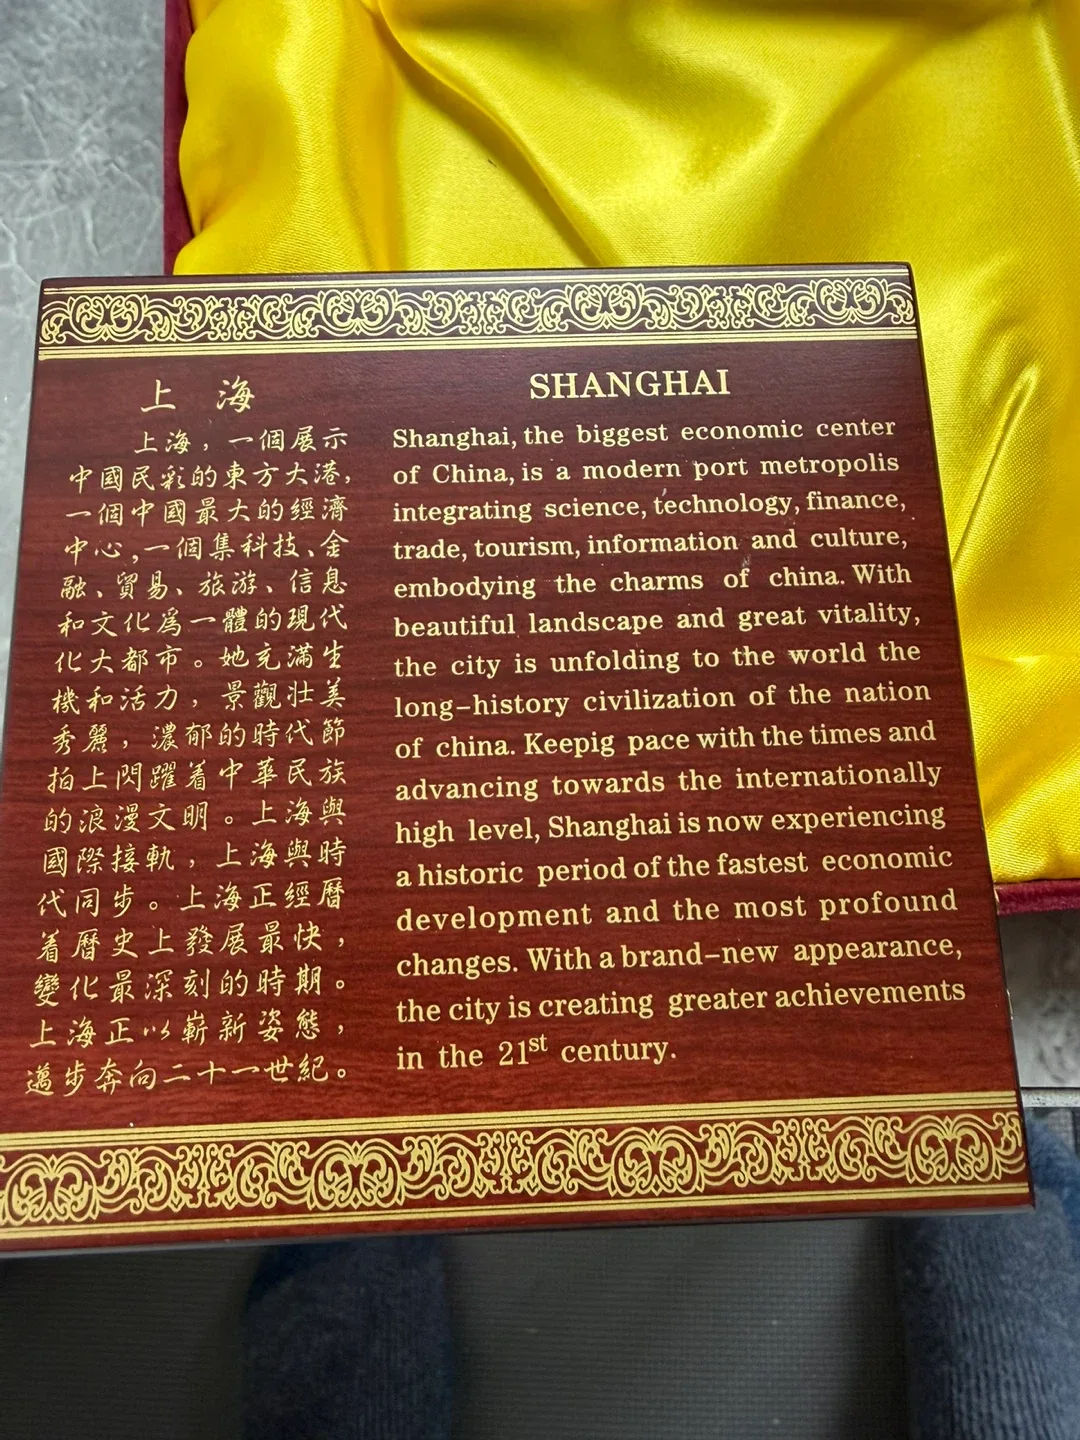 上 海
上海，一個展示
中國民彩的東方大港，
一個中國最大的經濟
中心，一個集科技、金
融、貿易、旅游、信息
和文化爲一體的現代
化大都市。她充滿生
機和活力，景觀壯美
秀麗，濃郁的時代節
拍上閃躍着中華民族
的浪漫文明。上海與
國際接軌，上海與時
代同步。上海正經曆
着曆史上發展最快，
變化最深刻的時期。
上海正以嶄新姿態，
邁步奔向二十一世紀。
SHANGHAI
Shanghai, the biggest economic center
of China, is a modern port metropolis
integrating science, technology, finance,
trade, tourism, information and culture,
embodying the charms of china. With
beautiful landscape and great vitality,
the city is unfolding to the world the
long-history civilization of the nation
of china. Keepig pace with the times and
advancing towards the internationally
high level, Shanghai is now experiencing
a historic period of the fastest economic
development and the most profound
changes. With a brand-new appearance,
the city is creating greater achievements
in the 21st century.